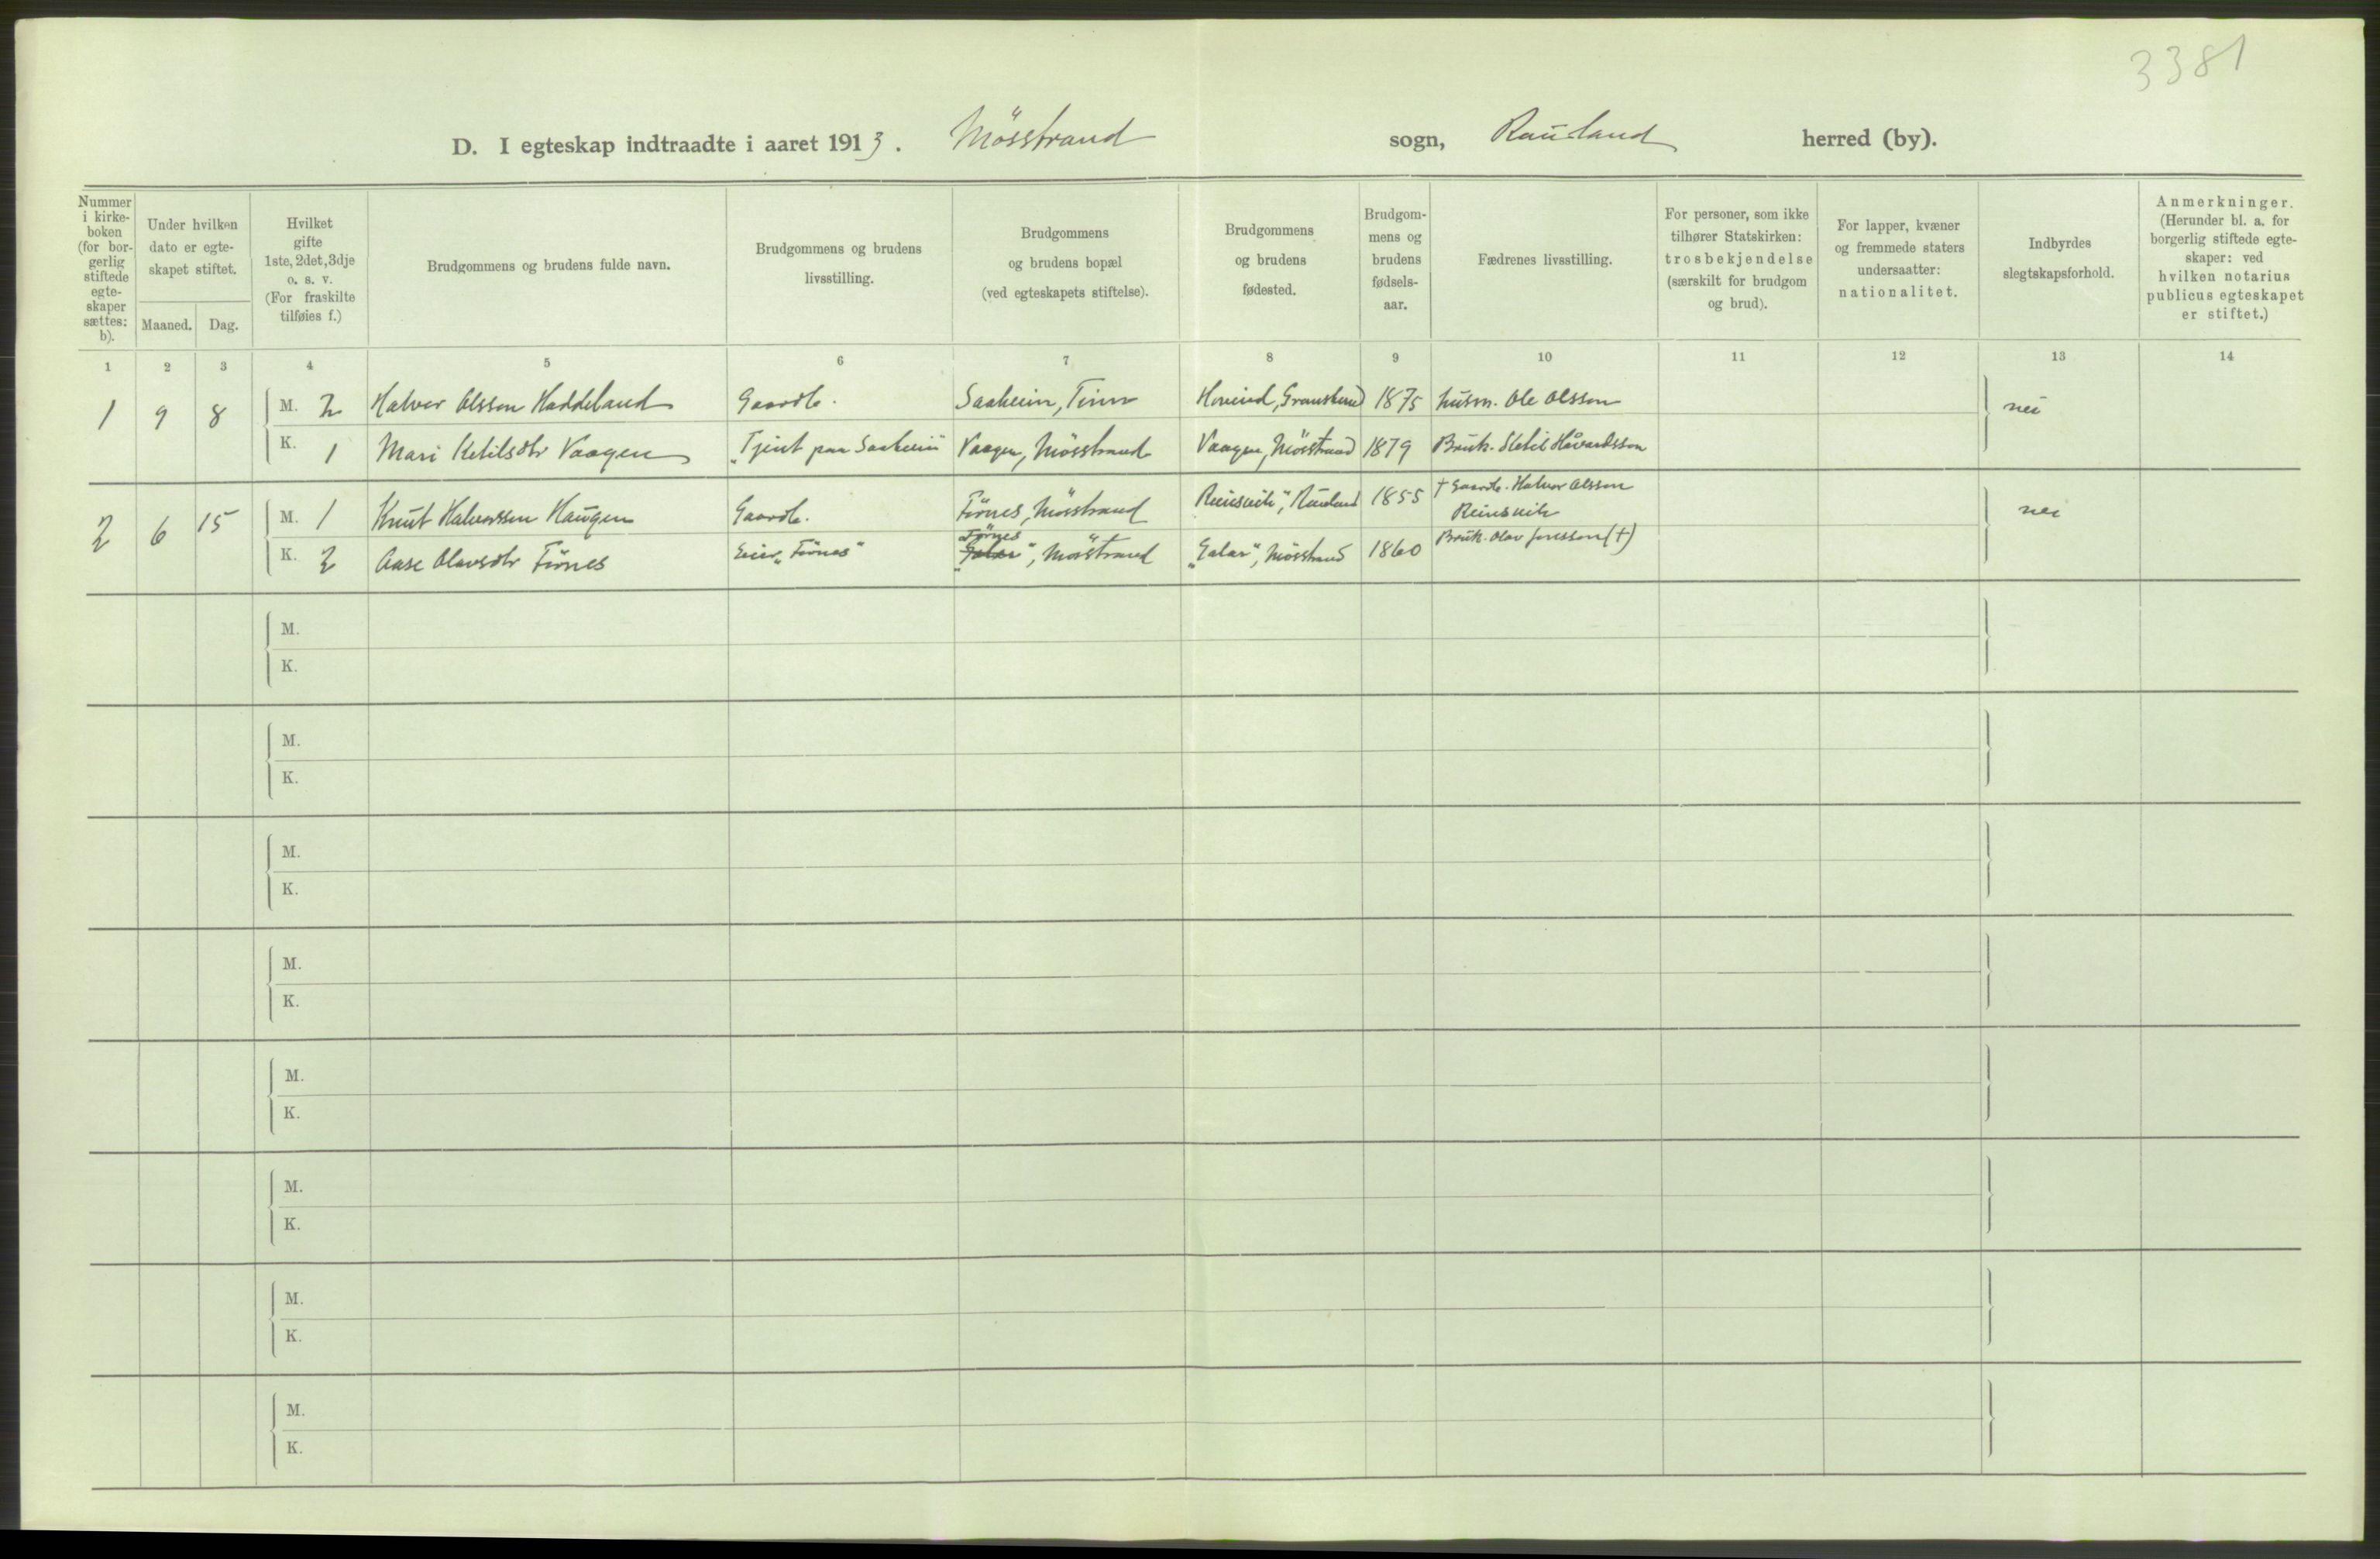 3381
D. I egteskap indtraadte i aaret 1913. Mösstrand sogn, Rauland herred (by).
Nummer i kirke-boken (for bor-gerlig stiftede egte-skaper sættes: b).
Under hvilken dato er egte-skapet stiftet.
Maaned. Dag.
Hvilket gifte 1ste, 2det, 3dje o. s. v. (For fraskilte tilføies f.)
Brudgommens og brudens fulde navn.
Brudgommens og brudens livsstilling.
Brudgommens og brudens bopæl (ved egteskapets stiftelse).
Brudgommens og brudens fødested.
Brudgom-mens og brudens fødsels-aar.
Fædrenes livsstilling.
For personer, som ikke tilhører Statskirken: trosbekjendelse (særskilt for brudgom og brud).
For lapper, kvæner og fremmede staters undersaatter: nationalitet.
Indbyrdes slegtskapsforhold.
Anmerkninger. (Herunder bl. a. for borgerlig stiftede egte-skaper: ved hvilken notarius publicus egteskapet er stiftet.)
1 2 3 4 5 6 7 8 9 10 11 12 13 14
1 9 8 M. 2 Halvor Olsson Haddeland Gaardb. Saaheim, Tinn Hovind, Gransherad 1875 husm. Ole Olsson nei
K. 1 Mari Ketilsdtr Vaagen Tjent paa Saaheim" Vaagen, Mösstrand Vaagen, Mösstrand 1879 Bruk. Ketil Håvardsson
2 6 15 M. 1 Knut Halvorsson Haugen Gaardb. Förnes, Mösstrand Reinsvik", Rauland 1855 † Gaardb. Halvor Olsson Reinsvik nei
K. 2 Aase Olavsdtr Förnes Eier „Förnes" Förnes", Mösstrand „Galar", Mösstrand 1860 Bruk. Olav Jonsson (†)
M.
K.
M.
K.
M.
K.
M.
K.
M.
K.
M.
K.
M.
K.
M.
K.